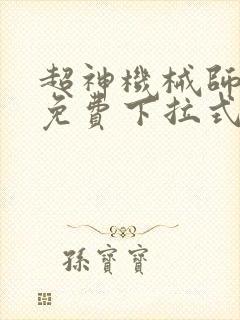 超神機械師
免費下拉式
孫寶寶